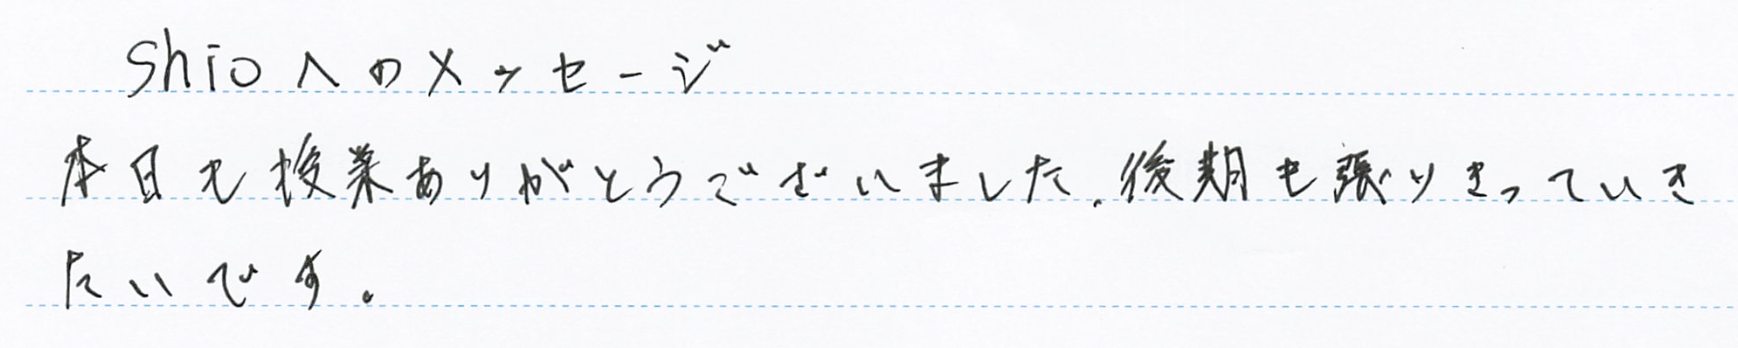 shioへのメッセージ
本日も授業ありがとうございました。後期も張りきっていき
たいです。